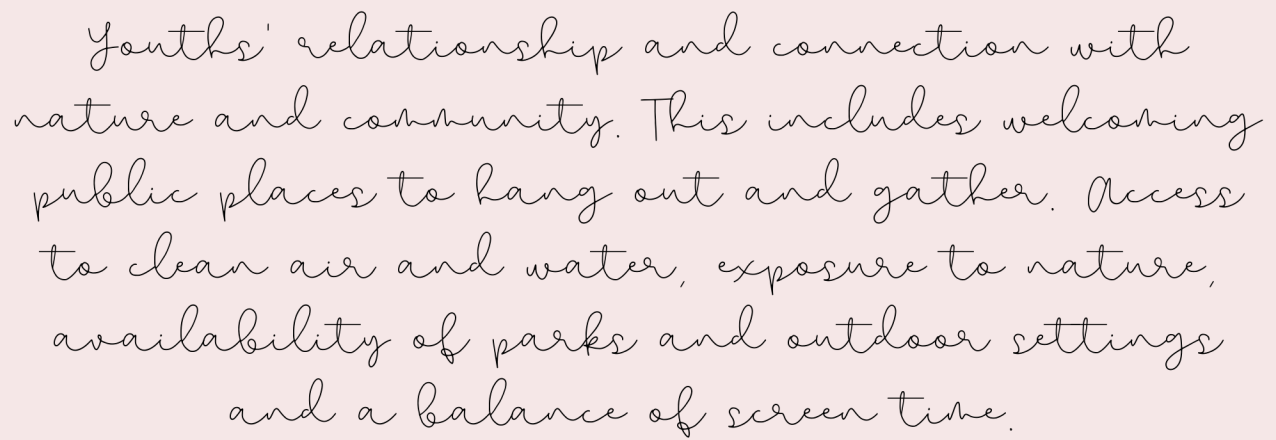 Youths' relationship and connection with
nature and community. This includes welcoming
public places to hang out and gather. Access
to clean air and water, exposure to nature,
availability of parks and outdoor settings
and a balance of screen time.